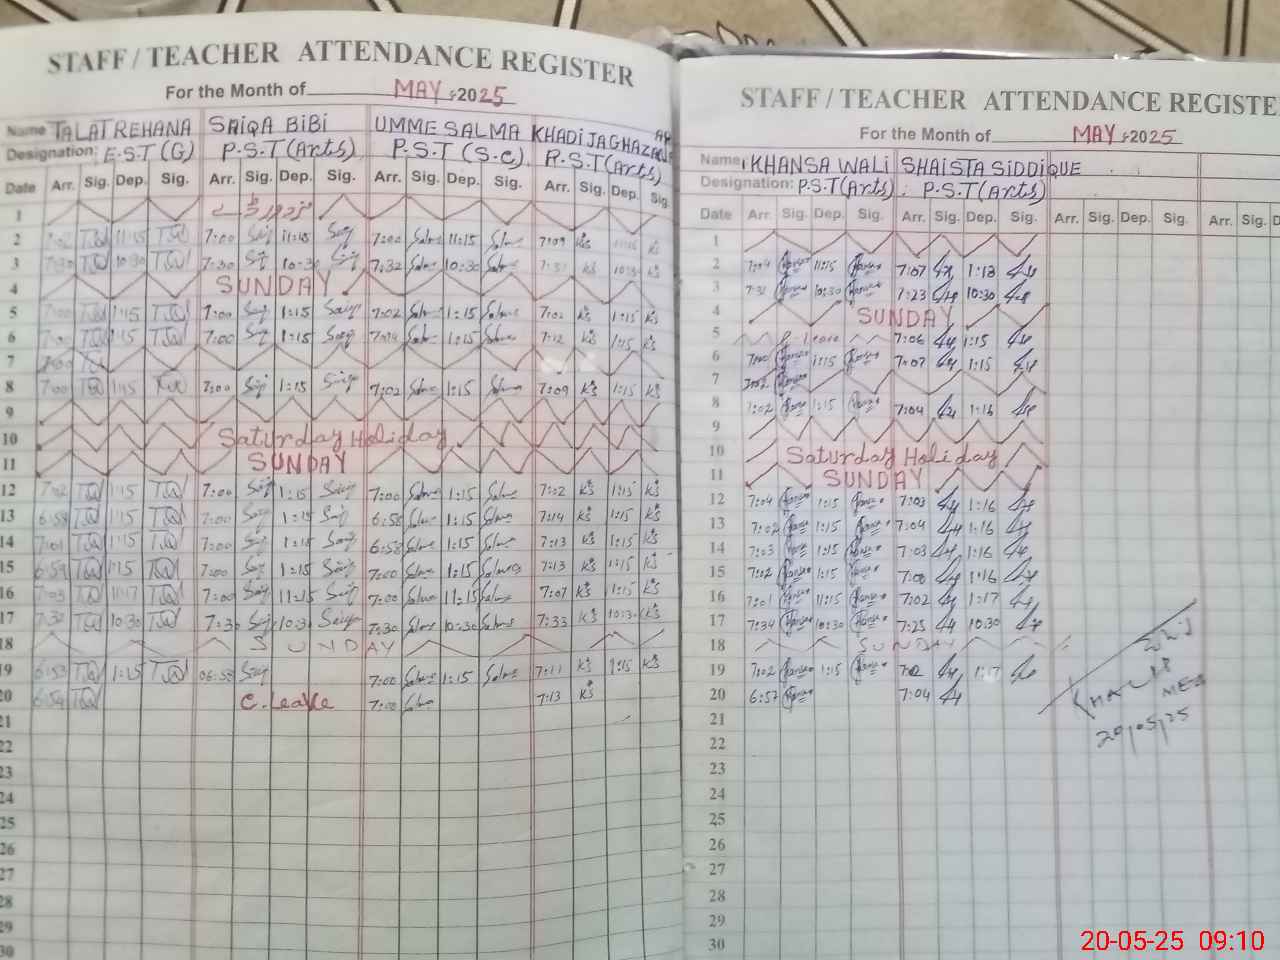 STAFF / TEACHER ATTENDANCE REGISTER
For the Month of MAY 2025
Name TALAT REHANA SAIQA BIBI UMME SALMA KHADIJA GHAZA
Designation: E.S.T (G) P.S.T (Arts) P.S.T (S.C) P.S.T (Arts)
Date Arr. Sig. Dep. Sig. Arr. Sig. Dep. Sig. Arr. Sig. Dep. Sig. Arr. Sig. Dep. Sig.
1
2 7:02 TQ 11:15 TQ 7:00 Saiq 11:15 Saiq 7:00 Salma 11:15 Salma 7:09 KS 11:15 KS
3 7:30 TQ 10:30 TQ 7:30 Saiq 10:30 Saiq 7:32 Salma 10:30 Salma KS 10:30 KS
4 SUNDAY
5 7:00 TQ 1:15 TQ 7:00 Saiq 1:15 Saiq 7:02 Salma 1:15 Salma 7:02 KS 1:15 KS
6 TQ 1:15 TQ 7:00 Saiq 1:15 Saiq 7:04 Salma 1:15 Salma 7:12 KS 1:15 KS
7 7:00 TQ
8 7:00 TQ 1:15 TQ 7:00 Saiq 1:15 Saiq 7:02 Salma 1:15 Salma 7:09 KS 1:15 KS
9
10 Saturday Holiday
11 SUNDAY
12 7:02 TQ 1:15 TQ 7:00 Saiq 1:15 Saiq 7:00 Salma 1:15 Salma 7:12 KS 1:15 KS
13 6:58 TQ 1:15 TQ 7:00 Saiq 1:15 Saiq 6:58 Salma 1:15 Salma 7:14 KS 1:15 KS
14 7:01 TQ 1:15 TQ 7:00 Saiq 1:15 Saiq 6:58 Salma 1:15 Salma 7:13 KS 1:15 KS
15 6:59 TQ 1:15 TQ 7:00 Saiq 1:15 Saiq 7:00 Salma 1:15 Salma 7:13 KS 1:15 KS
16 7:03 TQ 11:17 TQ 7:00 Saiq 11:15 Saiq 7:00 Salma 11:15 Salma 7:07 KS 11:15 KS
17 7:32 TQ 10:30 TQ 7:30 Saiq 10:30 Saiq 7:30 Salma 10:30 Salma 7:33 KS 10:30 KS
18 SUNDAY
19 6:53 TQ 1:15 TQ 06:58 Saiq 7:00 Salma 1:15 Salma 7:11 KS 1:15 KS
20 6:59 TQ C. Leave 7:00 Salma 7:13 KS
21
22
23
24
25
26
27
28
29
30
STAFF / TEACHER ATTENDANCE REGISTE
For the Month of MAY 2025
Name KHANSA WALI SHAISTA SIDDIQUE
Designation: P.S.T (Arts) P.S.T (Arts)
Date Arr. Sig. Dep. Sig. Arr. Sig. Dep. Sig. Arr. Sig. Dep. Sig. Arr. Sig. D
1
2 7:04 Khansa 11:15 Khansa 7:07 1:13
3 7:31 Khansa 10:30 Khansa 7:23 10:30
4 SUNDAY
5 Leave 7:06 1:15
6 7:00 Khansa 1:15 Khansa 7:07 1:15
7 7:02 Khansa
8 7:02 Khansa 1:15 Khansa 7:04 1:16
9
10 Saturday Holiday
11 SUNDAY
12 7:04 Khansa 1:15 Khansa 7:03 1:16
13 7:02 Khansa 1:15 Khansa 7:04 1:16
14 7:03 Khansa 1:15 Khansa 7:03 1:16
15 7:02 Khansa 1:15 Khansa 7:00 1:16
16 7:01 Khansa 11:15 Khansa 7:02 1:17
17 7:34 Khansa 10:30 Khansa 7:25 10:30
18 SUNDAY
19 7:02 Khansa 1:15 Khansa 7:02 1:17
20 6:57 Khansa 7:04
21
22
23
24
25
26
27
28
29
30
KHALID
MEA
20/05/25
20-05-25 09:10